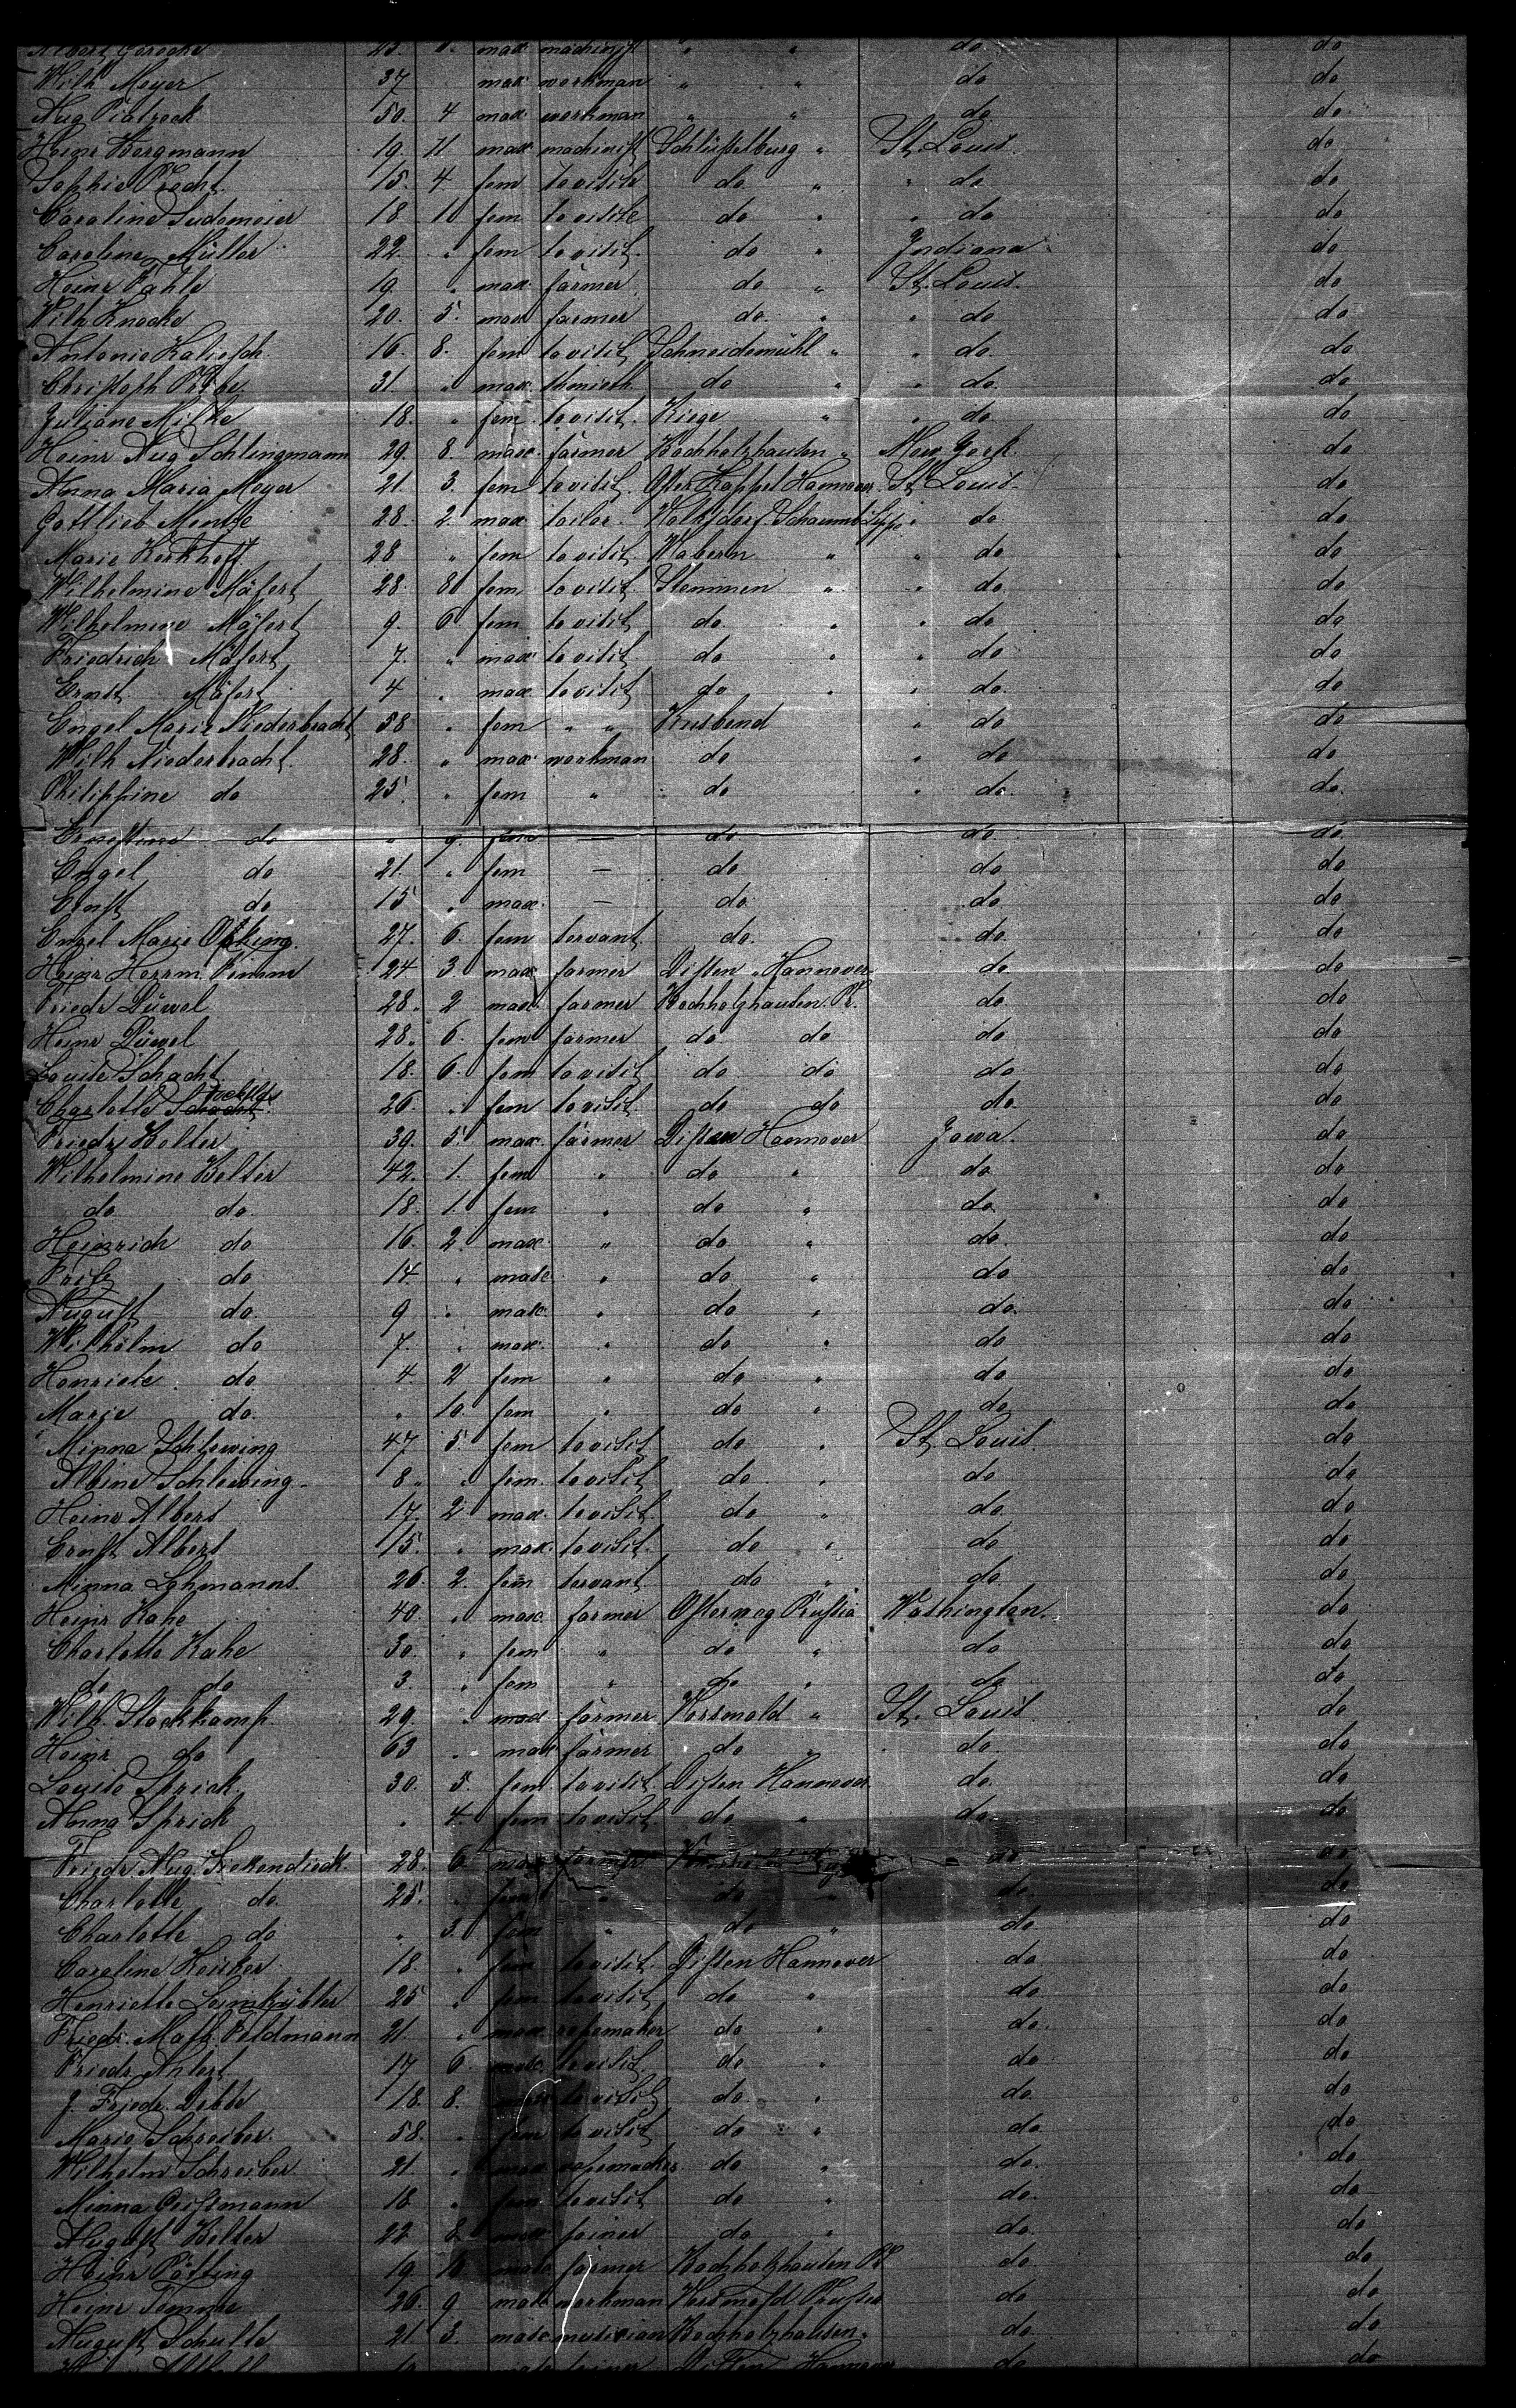 Albert Gerecke 23. masc machinist " " do do
Wilh Meyer 37 masc workman " " do do
Aug 50. 4 masc workman " " do do
Heinr Bergmann 19. 11 masc machinist Schlüsselburg " St. Louis. do
Sophie Precht 15. 4 fem to visit do " " do do
Caroline Sudemeier 18. 10 fem to visit do " " do do
Caroline Müller 22. " fem to visit. do " Indiana do
Heinr Fahle 19. " masc farmer do " St. Louis. do
Wilh Knocke 20. 5. masc farmer do " " do do
Antonie Kaliesch 16. 8. fem to visit Schneidemühl " " do do
Christoph 31. " masc do " " do do
Juliane Milke 18. " fem to visit. Kiege " " do do
Heinr Aug Schlingmann 29. 8. masc. farmer Bockholzhausen " New York. do
Anna Maria Meyer 21. 3. fem to visit. Oster Kappel Hannover St. Louis. do
Gottlieb Mentze 28. 2. masc tailor. Schaumb Lippe " do do
Marie Kerkhoff 28 " fem to visit. Wabern " " do do
Wilhelmine Mäfert 28. 8 fem to visit. Stemmen " " do do
Wilhelmine Mäfert 9. 6 fem to visit do " " do do
Friedrich Mäfert 7. " masc to visit. do " " do do
Ernst Mäfert 4 " masc to visit do " " do do
Engel Marie Niederbracht 58 " fem " " Krusbend " do do
Wilh Niederbracht. 28. " masc workman do " do do
Philippine do 25. " fem " do " do. do.
Ernestine do " 9. fem — do do do
Engel do 21. " fem — do do do
Ernst do 15 " masc. — do do. do
Engel Marie Ofking. 27. 6. fem servant. do. do. do
Heinr Herrm. 24 3. masc farmer Dissen " Hannover do. do
Friedr Düwel 28. 2 masc. farmer Bockholzhausen. Pr. do do
Heinr Düwel 28. 6. fem farmer do do do do
Louise Schacht 18. 6. fem to visit do do do do
Charlotte 26. " fem to visit. do do do. do
Friedr Bolter 39. 5. masc. farmer Dissen Hannover Jowa. do
Wilhelmine Bolter 42. 1. fem " do " do do
do do. 18. 1. fem " do " do do
Heinrich do 16. 2. masc. " do " do. do
Fritz do 14. " masc " do " do do
August do. 9 " masc. " do " do. do
Wilhelm do 7. " masc. " do " do do
Henriete do 4. 2 fem " do " do do
Marie do. " 10. fem " do " do do
Minna Schlewing 47. 5. fem to visit do " St. Louis. do
Albine Schlewing. 8 " " fem. to visit do " do do
Heinr Albers 17. 2. masc. to visit. do " do. do
Ernst Albers 15. " masc. to visit. do " do do
Minna Lehmanns. 26. 2. fem servant. do " do do
Heinr Kahe 40. " masc. farmer Osterweg Prussia Washington. do
Charlotte Kahe 30. " fem " do " do do
do do 3. " fem " do " do do
Wilh. Stockkamp. 29. " masc farmer. Versmold " St. Louis do
Heinr do 63 " masc farmer do " do. do
Louise Sprick. 30. 5. fem. to visit. Dissen Hannover do. do
Anna Sprick " 4. fem to visit. do " do. do
Friedr. Aug. Siekendieck 28. 6. masc farmer do do
Charlotte do. 25. " fem " do " do. do
Charlotte do " 3. fem " do " do. do
Caroline Kaiker 18. " fem to visit. Dissen Hannover do. do
Henriette Leimkühler 25 " fem to visit do " do. do
Friedr. Math. Feldmann 21. " masc. ropemaker do " do. do
Friedr. Ahlert 17 6. masc. to visit. do " do do
J. Friedr. Debbe 18. 8. masc to visit do. " do. do
Marie Schreiber 58. " fem to visit do " do. do
Wilhelm Schreiber 21. " masc ropemacker do " do. do
Minna 18 " fem to visit do " do. do
August Bolter 22 8 masc joiner do " do. do
Heinr Pötting 19. 10. masc farmer Bockholzhausen Pr do. do
Heinr Temme 26. 9 masc workman Versmold Prussia do. do
August Schulte 21. 3. masc musician Bockholzhausen. do. do
joiner Dissen Hannover do. do